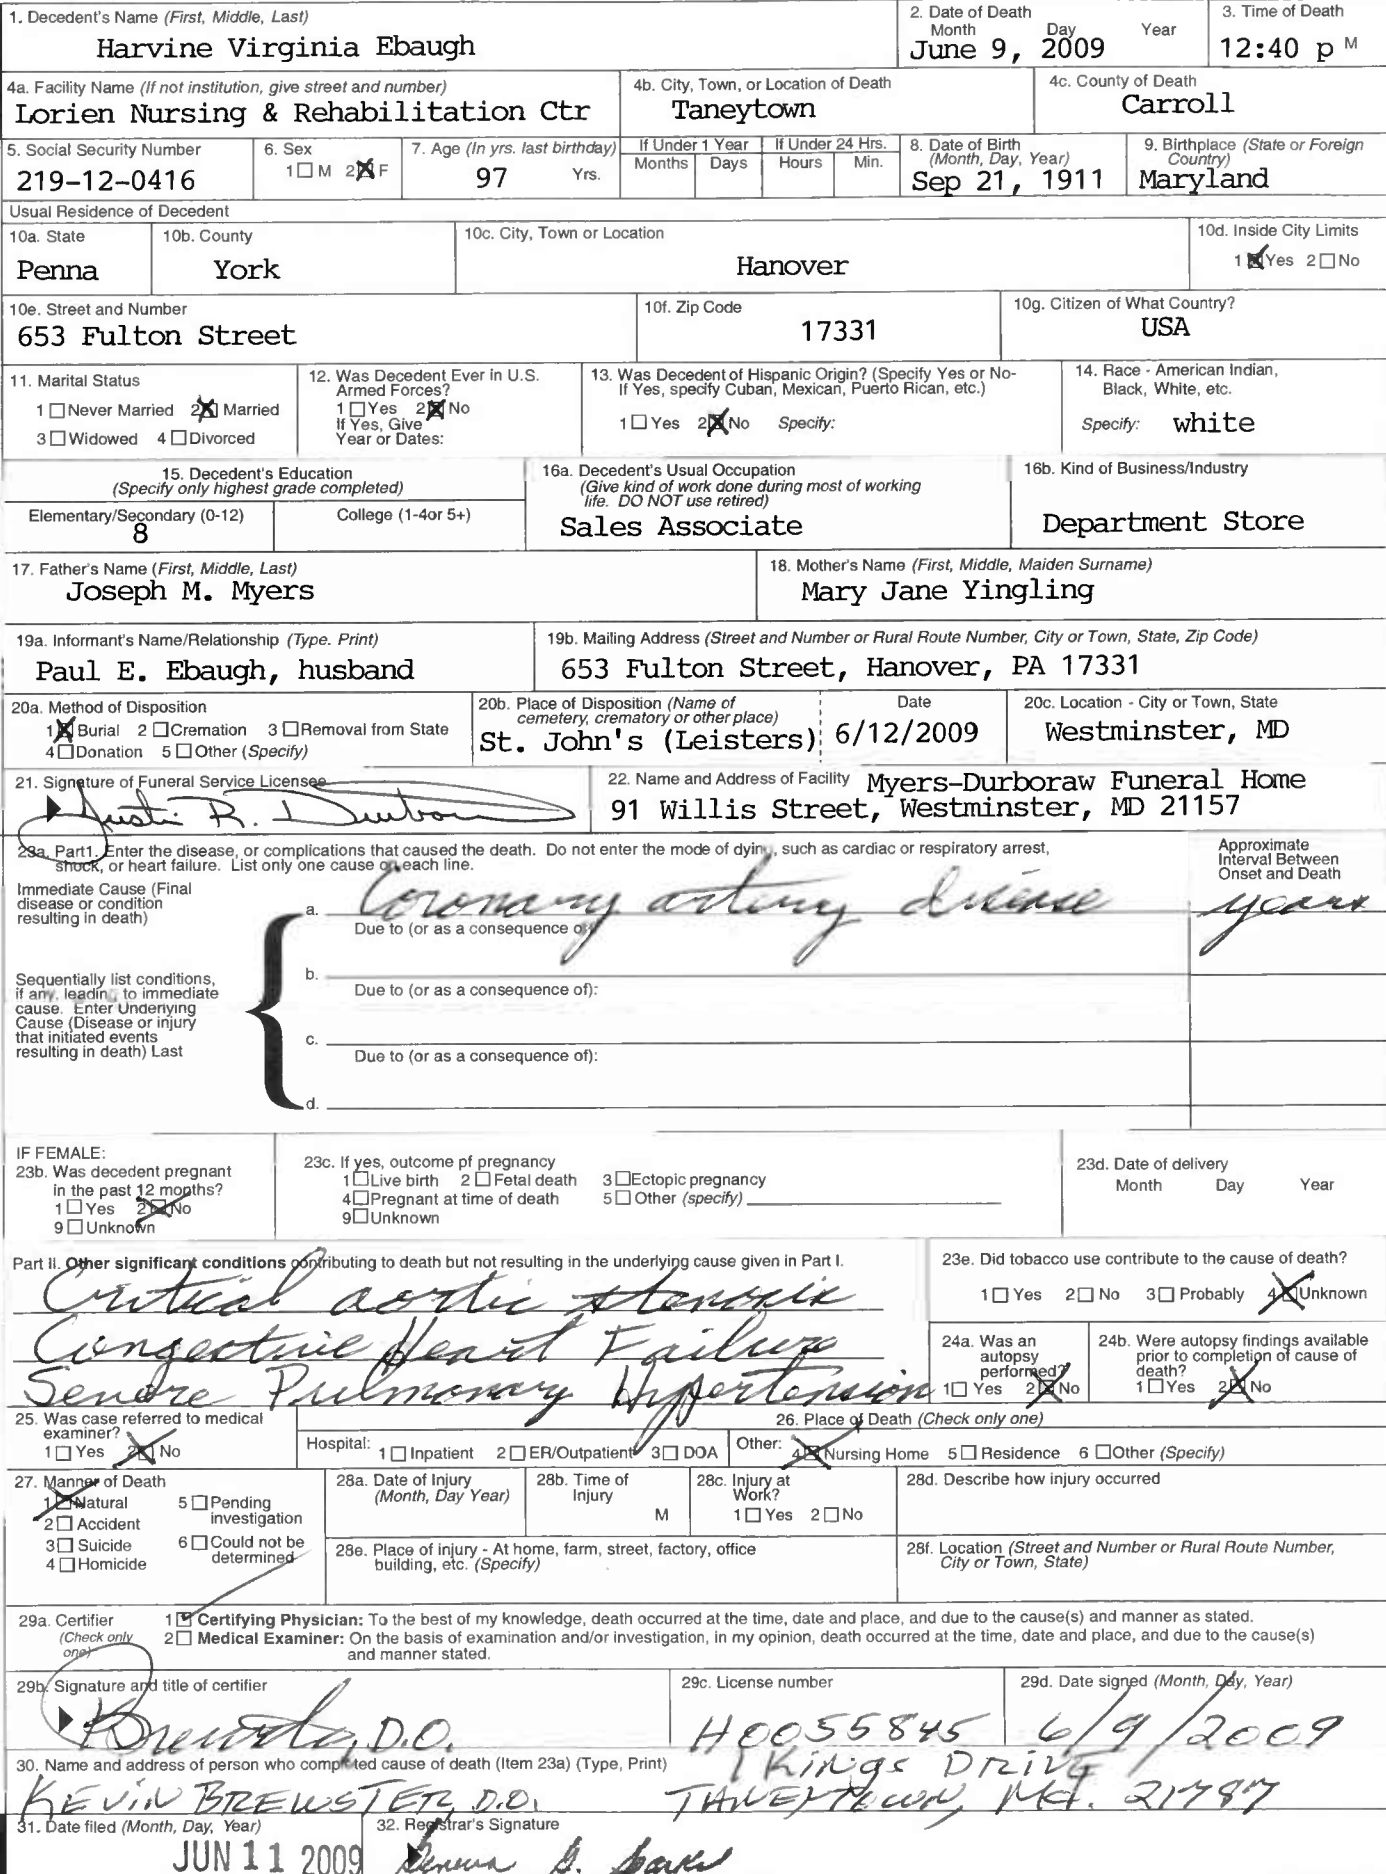 1. Decedent's Name (First, Middle, Last)
Harvine Virginia Ebaugh
2. Date of Death
Month Day Year
June 9, 2009
3. Time of Death
12:40 p M
4a. Facility Name (If not institution, give street and number)
Lorien Nursing & Rehabilitation Ctr
4b. City, Town, or Location of Death
Taneytown
4c. County of Death
Carroll
5. Social Security Number
219-12-0416
6. Sex
1 M 2 F
7. Age (In yrs. last birthday)
97 Yrs.
If Under 1 Year
Months Days
If Under 24 Hrs.
Hours Min.
8. Date of Birth
(Month, Day, Year)
Sep 21, 1911
9. Birthplace (State or Foreign
Country)
Maryland
Usual Residence of Decedent
10a. State
Penna
10b. County
York
10c. City, Town or Location
Hanover
10d. Inside City Limits
1 Yes 2 No
10e. Street and Number
653 Fulton Street
10f. Zip Code
17331
10g. Citizen of What Country?
USA
11. Marital Status
1 Never Married 2 Married
3 Widowed 4 Divorced
12. Was Decedent Ever in U.S.
Armed Forces?
1 Yes 2 No
If Yes, Give
Year or Dates:
13. Was Decedent of Hispanic Origin? (Specify Yes or No-
If Yes, specify Cuban, Mexican, Puerto Rican, etc.)
1 Yes 2 No Specify:
14. Race - American Indian,
Black, White, etc.
Specify: white
15. Decedent's Education
(Specify only highest grade completed)
Elementary/Secondary (0-12)
8
College (1-4or 5+)
16a. Decedent's Usual Occupation
(Give kind of work done during most of working
life. DO NOT use retired)
Sales Associate
16b. Kind of Business/Industry
Department Store
17. Father's Name (First, Middle, Last)
Joseph M. Myers
18. Mother's Name (First, Middle, Maiden Surname)
Mary Jane Yingling
19a. Informant's Name/Relationship (Type. Print)
Paul E. Ebaugh, husband
19b. Mailing Address (Street and Number or Rural Route Number, City or Town, State, Zip Code)
653 Fulton Street, Hanover, PA 17331
20a. Method of Disposition
1 Burial 2 Cremation 3 Removal from State
4 Donation 5 Other (Specify)
20b. Place of Disposition (Name of
cemetery, crematory or other place)
St. John's (Leisters)
Date
6/12/2009
20c. Location - City or Town, State
Westminster, MD
21. Signature of Funeral Service Licensee
Justin R. Durboraw
22. Name and Address of Facility Myers-Durboraw Funeral Home
91 Willis Street, Westminster, MD 21157
23a. Part1. Enter the disease, or complications that caused the death. Do not enter the mode of dying, such as cardiac or respiratory arrest,
shock, or heart failure. List only one cause on each line.
Approximate
Interval Between
Onset and Death
Immediate Cause (Final
disease or condition
resulting in death)
a. Coronary artery disease
years
Due to (or as a consequence of
Sequentially list conditions,
if any, leading to immediate
cause. Enter Underlying
Cause (Disease or injury
that initiated events
resulting in death) Last
b.
Due to (or as a consequence of):
c.
Due to (or as a consequence of):
d.
IF FEMALE:
23b. Was decedent pregnant
in the past 12 months?
1 Yes 2 No
9 Unknown
23c. If yes, outcome pf pregnancy
1 Live birth 2 Fetal death 3 Ectopic pregnancy
4 Pregnant at time of death 5 Other (specify)
9 Unknown
23d. Date of delivery
Month Day Year
Part II. Other significant conditions contributing to death but not resulting in the underlying cause given in Part I.
Critical aortic stenosis
Congestive Heart Failure
Severe Pulmonary Hypertension
23e. Did tobacco use contribute to the cause of death?
1 Yes 2 No 3 Probably 4 Unknown
24a. Was an
autopsy
performed?
1 Yes 2 No
24b. Were autopsy findings available
prior to completion of cause of
death?
1 Yes 2 No
25. Was case referred to medical
examiner?
1 Yes 2 No
26. Place of Death (Check only one)
Hospital: 1 Inpatient 2 ER/Outpatient 3 DOA
Other: 4 Nursing Home 5 Residence 6 Other (Specify)
27. Manner of Death
1 Natural
2 Accident
3 Suicide
4 Homicide
5 Pending
investigation
6 Could not be
determined
28a. Date of Injury
(Month, Day Year)
28b. Time of
Injury
M
28c. Injury at
Work?
1 Yes 2 No
28d. Describe how injury occurred
28e. Place of injury - At home, farm, street, factory, office
building, etc. (Specify)
28f. Location (Street and Number or Rural Route Number,
City or Town, State)
29a. Certifier
(Check only
one)
1 Certifying Physician: To the best of my knowledge, death occurred at the time, date and place, and due to the cause(s) and manner as stated.
2 Medical Examiner: On the basis of examination and/or investigation, in my opinion, death occurred at the time, date and place, and due to the cause(s)
and manner stated.
29b. Signature and title of certifier
D.O.
29c. License number
H0055845
29d. Date signed (Month, Day, Year)
6/9/2009
30. Name and address of person who completed cause of death (Item 23a) (Type, Print)
1 Kings DRIVE
KEVIN BREWSTER, D.O. TANEYTOWN, Md. 21787
31. Date filed (Month, Day, Year)
JUN 11 2009
32. Registrar's Signature